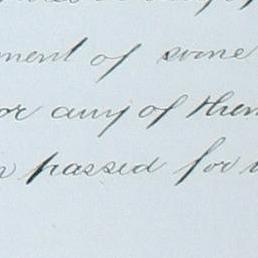 ment of some
or any of them
passed for